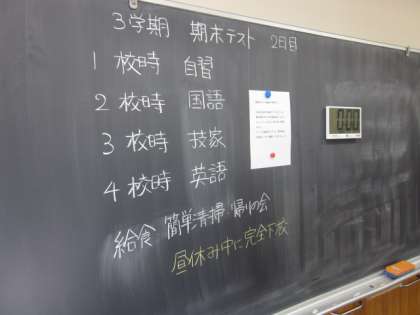 3学期 期末テスト 2日目
1 校時 自習
2 校時 国語
3 校時 技家
4 校時 英語
給食 簡単清掃・帰りの会
昼休み中に完全下校
0:00